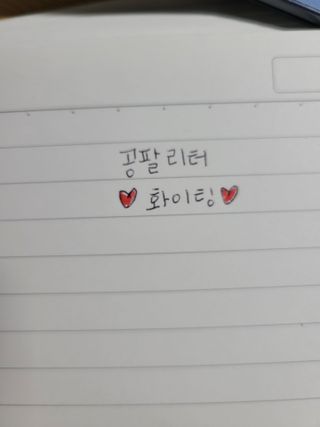 공팔리터
♥ 화이팅 ♥